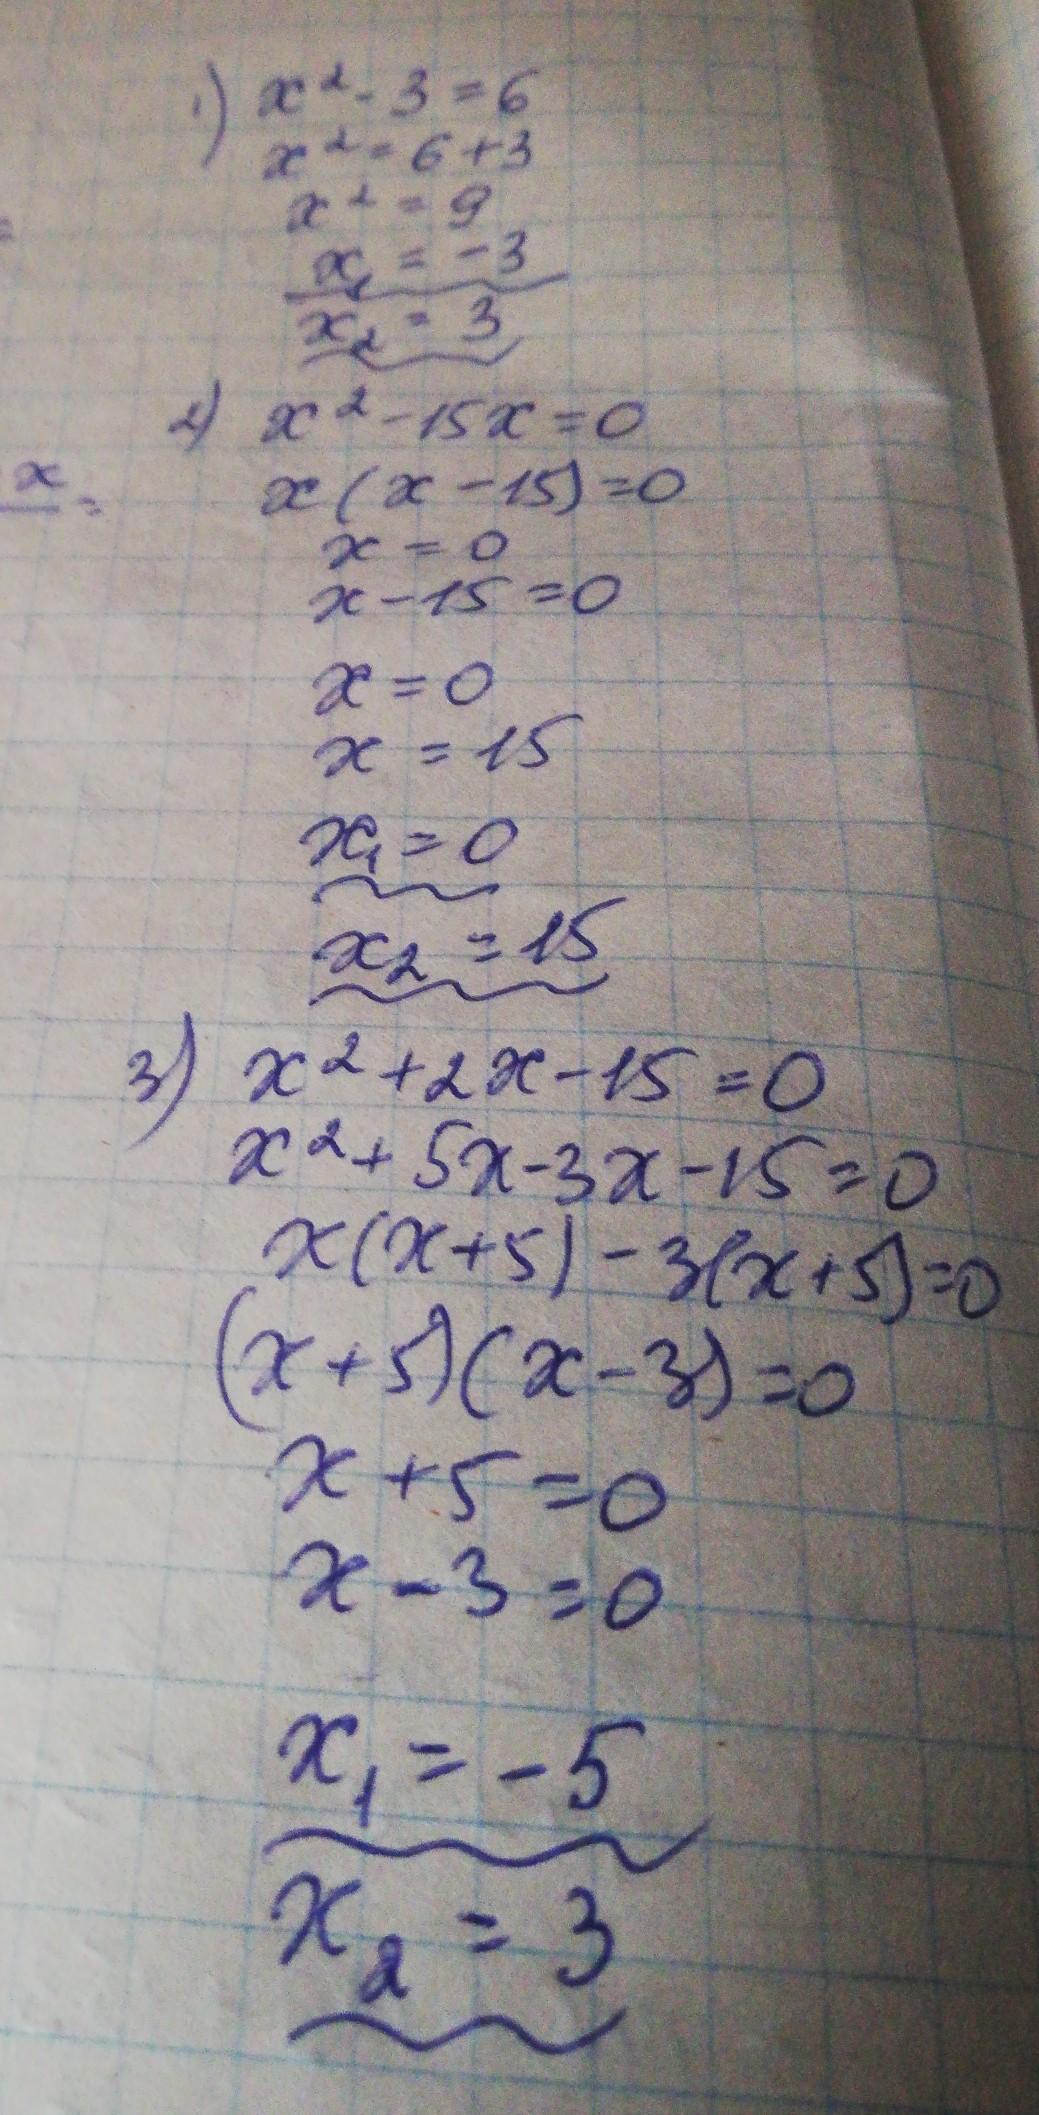 1) x² - 3 = 6
x² = 6 + 3
x² = 9
x₁ = -3
x₂ = 3
2) x² - 15x = 0
x =
x(x - 15) = 0
x = 0
x - 15 = 0
x = 0
x = 15
x₁ = 0
x₂ = 15
3) x² + 2x - 15 = 0
x² + 5x - 3x - 15 = 0
x(x + 5) - 3(x + 5) = 0
(x + 5)(x - 3) = 0
x + 5 = 0
x - 3 = 0
x₁ = -5
x₂ = 3